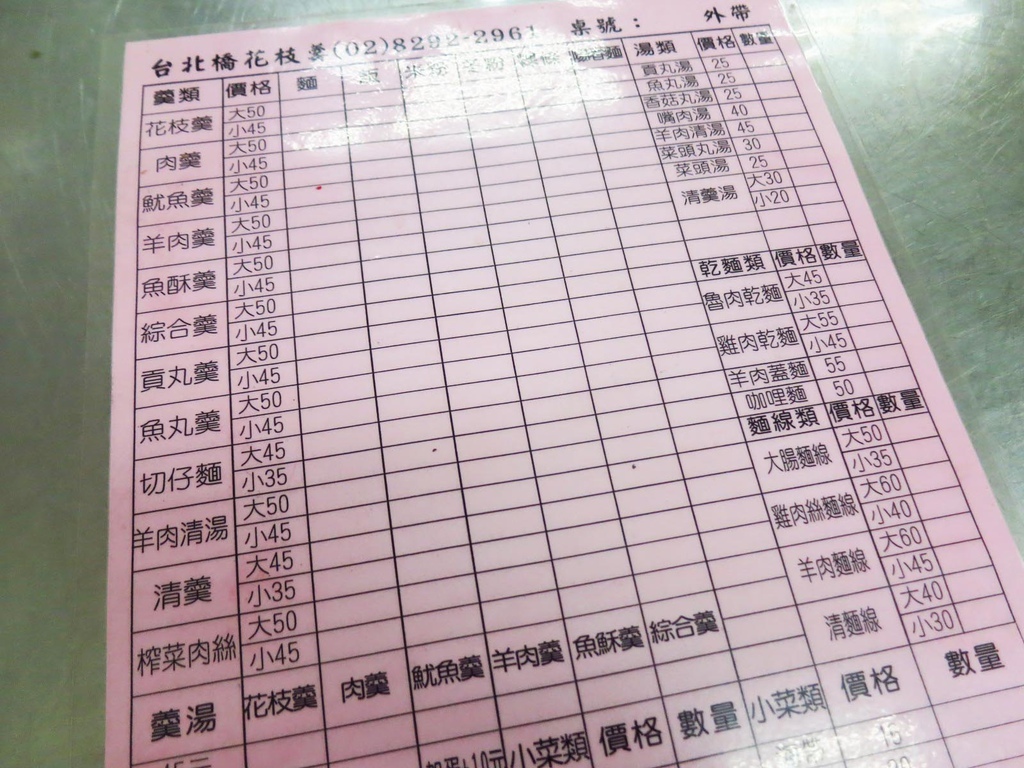 台北橋花枝羹(02)8292-2961 桌號： 外帶
羹類 價格 麵
花枝羹 大50 小45
肉羹 大50 小45
魷魚羹 大50 小45
羊肉羹 大50 小45
魚酥羹 大50 小45
綜合羹 大50 小45
貢丸羹 大50 小45
魚丸羹 大50 小45
切仔麵 大45 小35
羊肉清湯 大50 小45
清羹 大45 小35
榨菜肉絲 大50 小45
羹湯 花枝羹 肉羹 魷魚羹 羊肉羹 魚酥羹 綜合羹
湯類 價格 數量
貢丸湯 25
魚丸湯 25
香菇丸湯 25
嘴肉湯 40
羊肉清湯 45
菜頭丸湯 30
菜頭湯 25
清羹湯 大30 小20
乾麵類 價格 數量
魯肉乾麵 大45 小35
雞肉乾麵 大55 小45
羊肉蓋麵 55
咖哩麵 50
麵線類 價格 數量
大腸麵線 大50 小35
雞肉絲麵線 大60 小40
羊肉麵線 大60 小45
清麵線 大40 小30
小菜類 價格 數量 小菜類 價格 數量
15